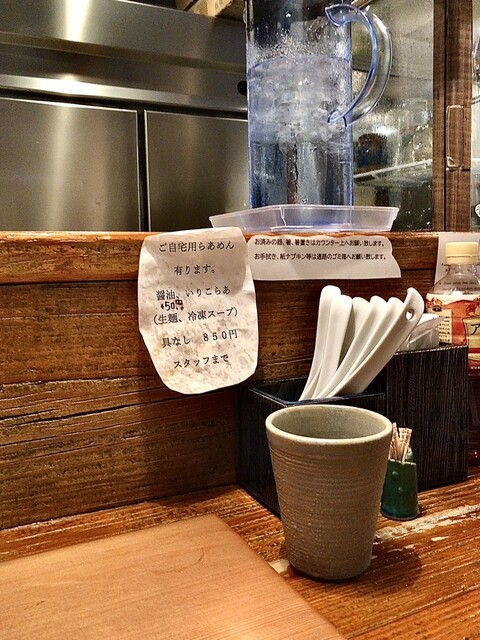 ご自宅用らあめん
有ります。
醤油、いりこらあ
+50円
(生麺、冷凍スープ)
具なし 850円
スタッフまで
お済みの器、箸、箸置きはカウンター上へお願い致します。
お手拭き、紙ナプキン等は通路のゴミ箱へお願い致します。
ア